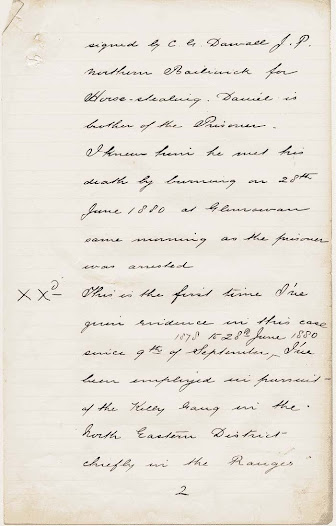 signed by C G Dawall J. P.
Northern Bailiwick for
Horse-stealing. Daniel is
brother of the Prisoner.
I knew him he met his
death by burning on 28th
June 1880 at Glenrowan
same morning as the prisoner
was arrested
XXD This is the first time I've
given evidence in this case
1878 to 28th June 1880
since 9th of September, I've
been employed in pursuit
of the Kelly Gang in the
North Eastern District
chiefly in the Ranges
2